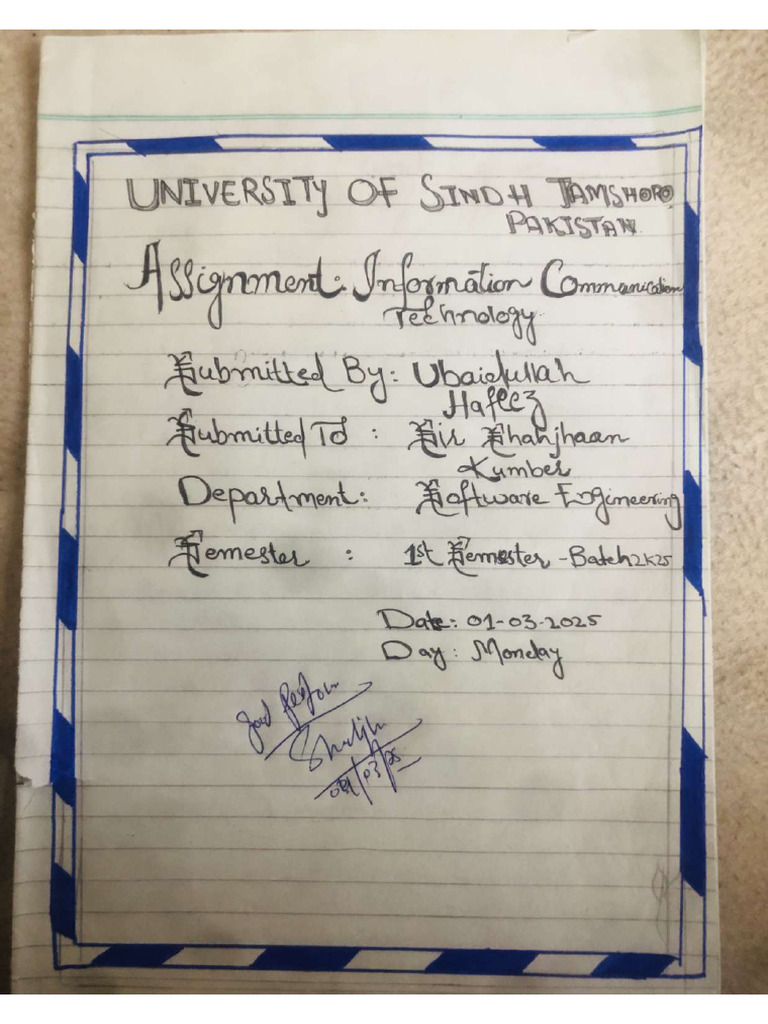 UNIVERSITY OF SINDH JAMSHORO
PAKISTAN
Assignment: Information Communication
Technology
Submitted By: Ubaidullah
Hafeez
Submitted To : Sir Shanjhaan
Kumber
Department: Software Engineering
Semester : 1st Semester - Batch 2k25
Date: 01-03-2025
Day: Monday